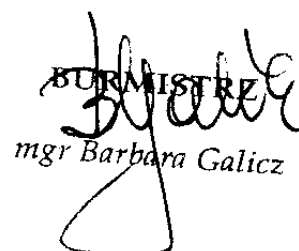 BURMISTRZ
mgr Barbara Galicz